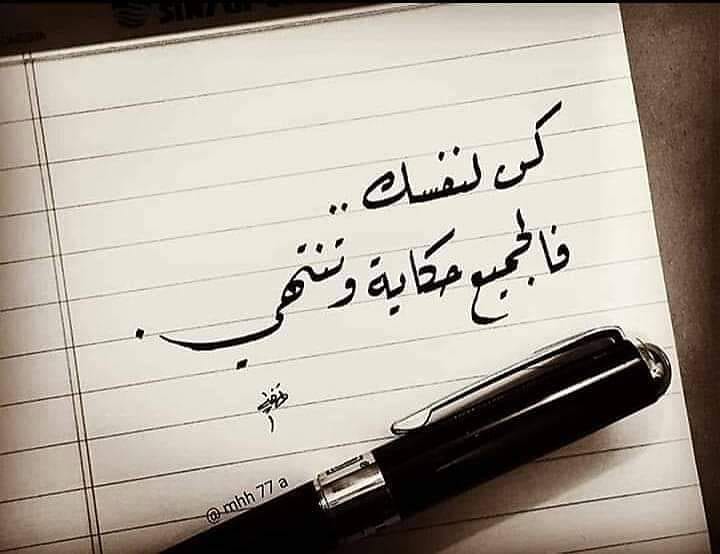 كن لنفسك ..
فالجميع حكاية وتنتهي .
@ mhh 77 a